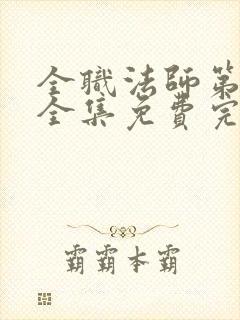 全職法師第
全集免費完
霸霸本霸